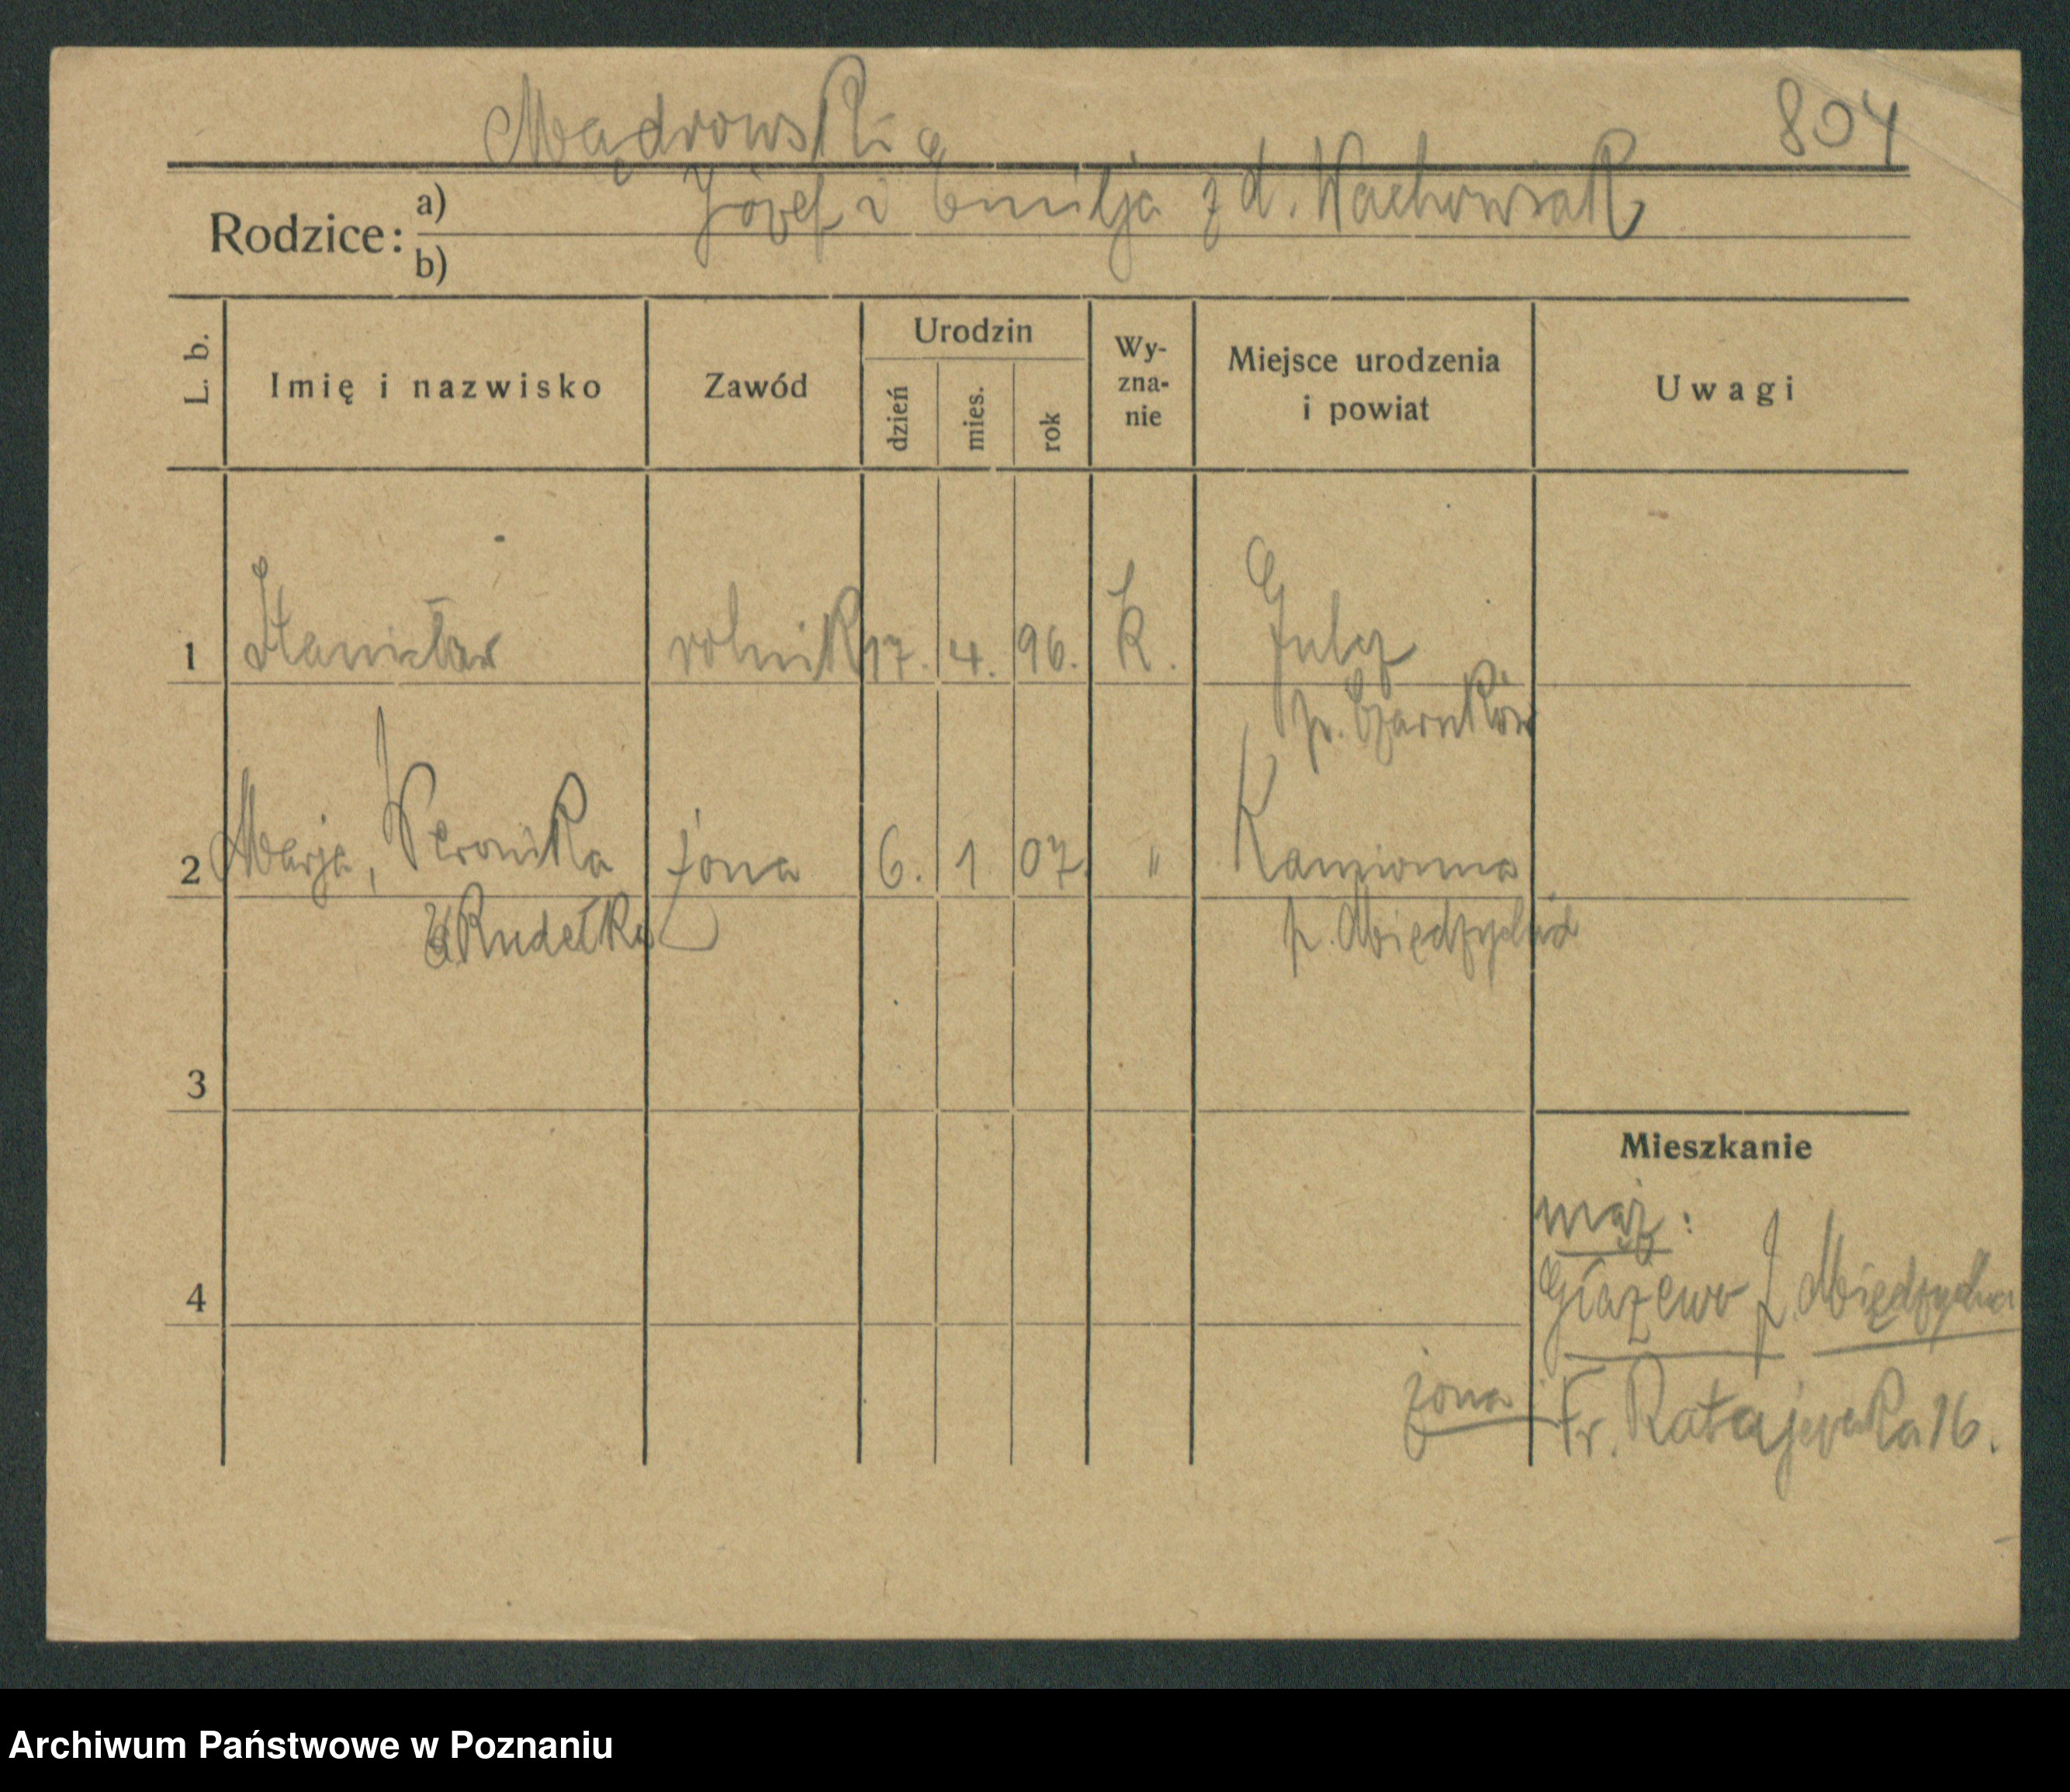 Mądrowski 804
Rodzice: a) Józef i Emilja z d. Wachowiak
b)
L. b. Imię i nazwisko Zawód Urodzin dzień mies. rok Wy-zna-nie Miejsce urodzenia i powiat Uwagi
1 Stanisław rolnik 17. 4. 96. k. Gulcz
p. Czarnków
2 Marja, Weronika żona 6. 1 07. " Kamionna
Rudełka p. Międzychód
3
Mieszkanie
mąż:
4 Głażewo p. Międzychód
żona Fr. Ratajczaka 16.
Archiwum Państwowe w Poznaniu